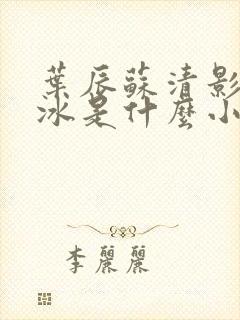 葉辰蘇清影
冰是什麼小
李麗麗